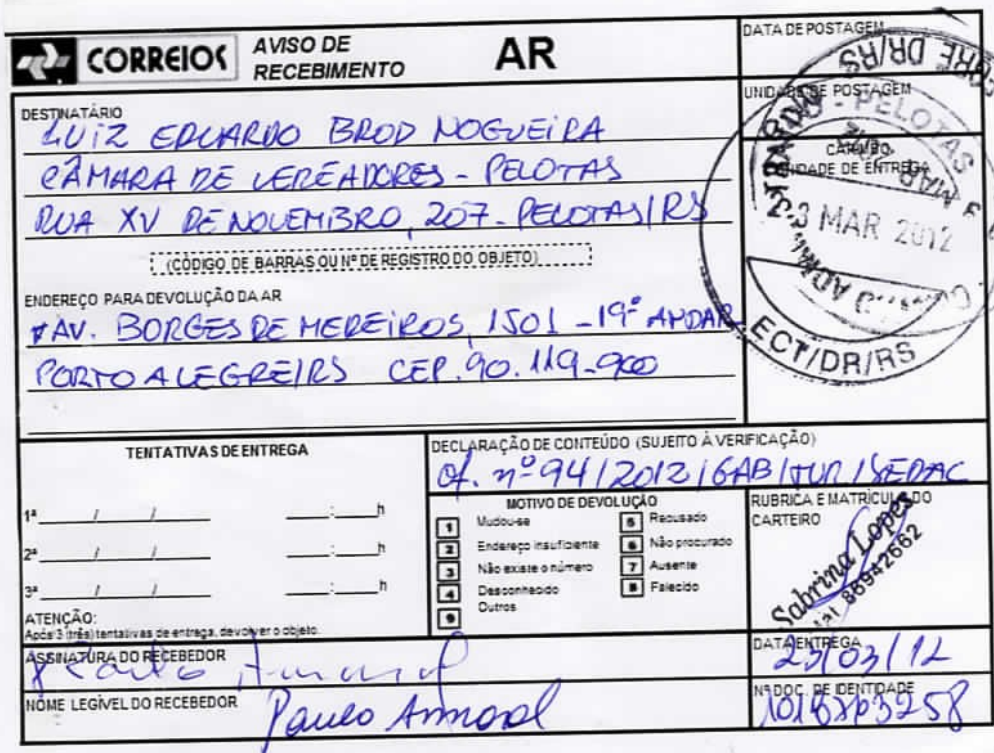 CORREIOS
AVISO DE RECEBIMENTO
AR
DATA DE POSTAGEM
UNIDADE DE POSTAGEM
CARIMBO
UNIDADE DE ENTREGA
DR/RS
PELOTAS
MAR 2012
ECT/DR/RS
DESTINATÁRIO
LUIZ EDUARDO BROD NOGUEIRA
CÂMARA DE VEREADORES - PELOTAS
RUA XV DE NOVEMBRO, 207 - PELOTAS/RS
(CÓDIGO DE BARRAS OU Nº DE REGISTRO DO OBJETO)
ENDEREÇO PARA DEVOLUÇÃO DA AR
AV. BORGES DE MEDEIROS, 1501 - 19º ANDAR
PORTO ALEGRE/RS CEP. 90.119-900
TENTATIVAS DE ENTREGA
1ª ____/____/____ ____:____h
2ª ____/____/____ ____:____h
3ª ____/____/____ ____:____h
ATENÇÃO:
Após 3 (três) tentativas de entrega, devolver o objeto.
DECLARAÇÃO DE CONTEÚDO (SUJEITO À VERIFICAÇÃO)
Of. nº 94/2012/GAB/JUR/SEDAC
MOTIVO DE DEVOLUÇÃO
1 Mudou-se
2 Endereço insuficiente
3 Não existe o número
4 Desconhecido
9 Outros
5 Recusado
6 Não procurado
7 Ausente
8 Falecido
RUBRICA E MATRÍCULA DO CARTEIRO
Sabrina Lopes
86942662
ASSINATURA DO RECEBEDOR
Paulo Amaral
DATA ENTREGA
23/03/12
NOME LEGÍVEL DO RECEBEDOR
Paulo Amaral
Nº DOC. DE IDENTIDADE